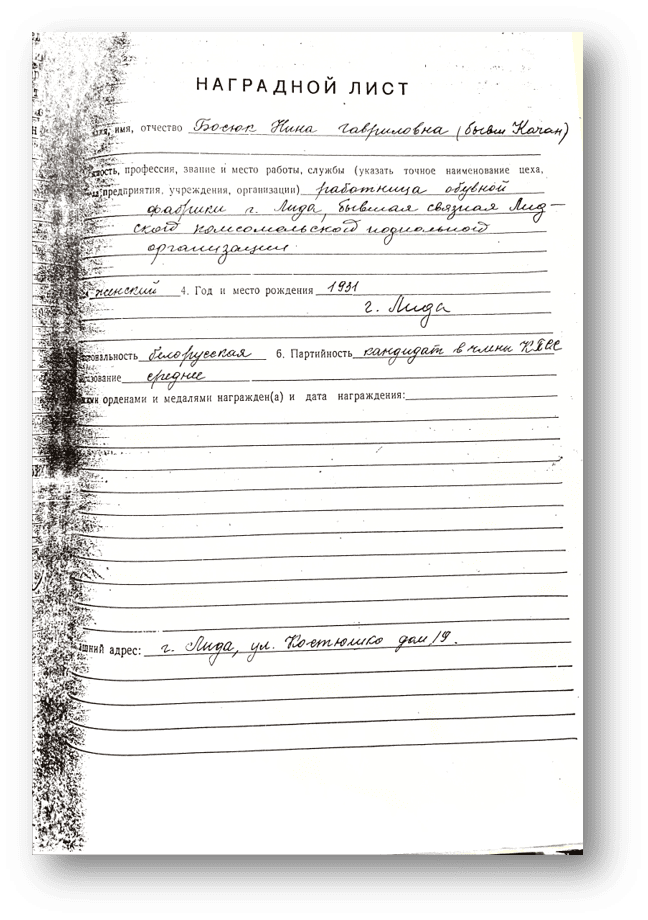 НАГРАДНОЙ ЛИСТ
имя, отчество Босюк Нина Гавриловна (бывш Качан)
профессия, звание и место работы, службы (указать точное наименование цеха,
предприятия, учреждения, организации) работница обувной
фабрики г. Лида, бывшая связная Лид-
ского комсомольской подпольной
организации
женский 4. Год и место рождения 1931
г. Лида
белорусская 6. Партийность кандидат в члены КПСС
среднее
орденами и медалями награжден(а) и дата награждения:
адрес: г. Лида, ул. Костюшко дом 19.